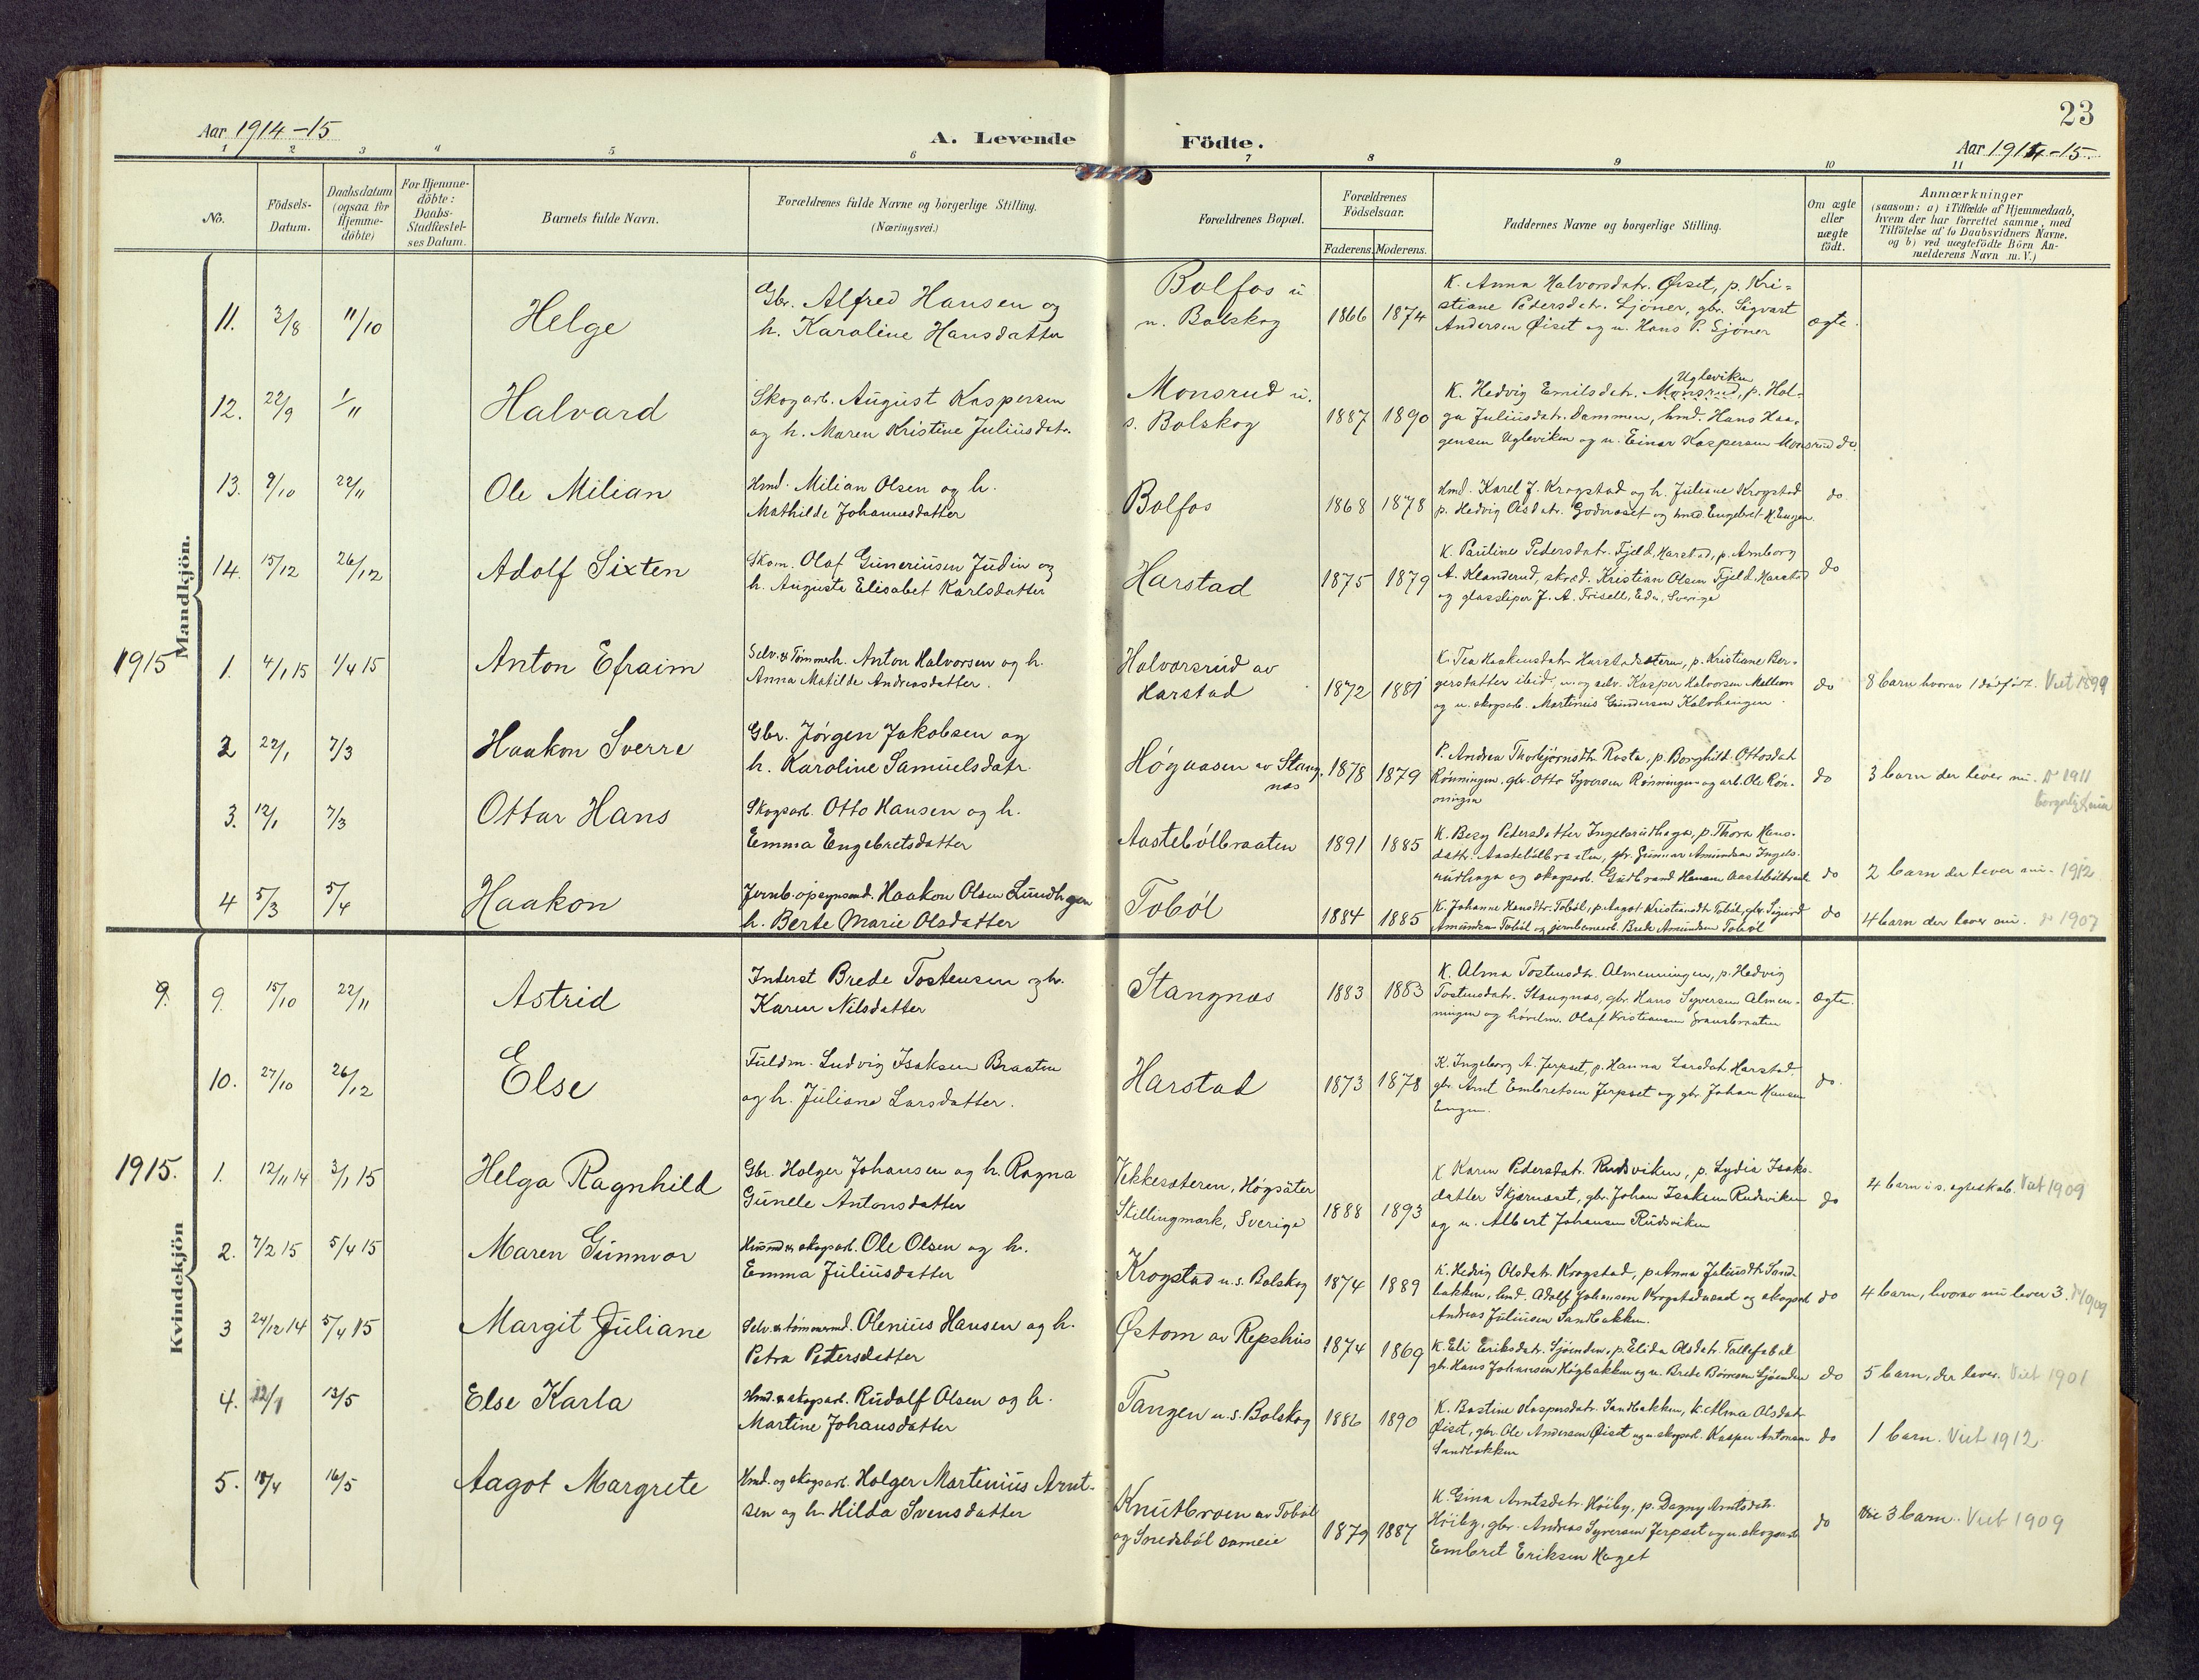 23
Aar 1914-15
A. Levende
Födte.
Aar 1914-15.
1 2 3 4 5 6 7 8 9 10 11
No.
Födsels-
Datum.
Daabsdatum
(ogsaa for
Hjemme-
döbte)
For Hjemme-
döbte:
Daabs-
Stadfæstel-
ses Datum.
Barnets fulde Navn.
Forældrenes fulde Navne og borgerlige Stilling.
(Næringsvei.)
Forældrenes Bopæl.
Forældrenes
Födselsaar.
Faderens. Moderens.
Faddernes Navne og borgerlige Stilling.
Om ægte
eller
uægte
födt.
Anmærkninger
(saasom: a) i Tilfælde af Hjemmedaab,
hvem der har forrettet samme, med
Tilföielse af to Daabsvidners Navne.
og b) ved uægtefödte Börn An-
melderens Navn m.V.)
Mandkjön.
11. 3/8 11/10 Helge
Gbr. Alfred Hansen og
h. Karoline Hansdatter
Bolfos u
n. Bolskog
1866 1874
K. Anna Halvorsdatr. Øiset, p. Kri-
stiane Pedersdatr. Sjöner, gbr. Sigvart
Andersen Øiset og u. Hans P. Sjöner
ægte.
12. 22/9 1/11 Halvard
Skogarb. August Kaspersen
og h. Maren Kristine Juliusdatr.
Monsrud u.
s. Bolskog
1887 1890
Ugleviken
K. Hedvig Emilsdatr. Monsrud, p. Hel-
ga Juliusdatr. Dammen, hmd. Hans Haa-
gensen Ugleviken og u. Einar Kaspersen Monsrud do.
13. 9/10 22/11 Ole Milian
Hmd. Milian Olsen og h.
Mathilde Johannesdatter
Bolfos
1868 1878
Hmd. Karel J. Krogstad og h. Juliane Krogstad
p. Hedvig Olsdatr. Godnæset og hmd. Engebret K. Engen.
do.
14. 15/12 26/12 Adolf Sixten
Skom. Olaf Guneriusen Judin og
h. Augusta Elisabet Karlsdatter
Harstad
1875 1879
K. Pauline Pedersdatr. Fjeld, Harstad, p. Amborg
A. Klanderud, skræd. Kristian Olsen Fjeld, Harstad
og glassliper J. A. Frisell, Eda, Sverige
do
1915 1. 4/1 15 1/4 15 Anton Efraim
Selv. & Tömmerh. Anton Halvorsen og h.
Anna Matilde Andreasdatter.
Halvorsrud av
Harstad
1872 1881
K. Tea Haakensdatr. Harstadsætern, p. Kristiane Ber-
gersdatter ibid. u. og selv. Kasper Halvorsen Mellem
og u. skogsarb. Martinius Gundersen Kalvhaugen.
do
8 barn hvorav 1 dödfödt. Viet 1899
2 22/1 7/3 Haakon Sverre
Gbr. Jörgen Jakobsen og
h. Karoline Samuelsdatr.
Högaasen av Stang-
næs
1878 1879
P. Andrea Thorbjørnsdtr. Rasta, p. Borghild Ottosdatr
Rönningen, gbr. Otto Syversen Rönningen og arb. Ole Rön-
ningen
do
3 barn der lever nu. V 1911
3. 12/1 7/3 Ottar Hans
Skogsarb. Otto Hansen og h.
Emma Engebretsdatter
Aastebölbraaten
1891 1885
K. Bezy Petersdatter Ingelsrudhaga, p. Thora Hans-
dattr. Aastebölbraaten, gbr. Gunnar Amundsen Ingels-
rudhaga og skogsarb. Gudbrand Hansen Aastebölbraate
do
2 barn der lever nu. 1912
4 5/3 5/4 Haakon
Jernb. opsynsmd. Haakon Olsen Lundhagen
h. Berte Marie Olsdatter
Toböl
1884 1885
K. Johanne Hansdtr. Toböl, p. Aagot Kristiansdtr Toböl, gbr. Sigurd
Amundsen Toböl og jernbanearb. Brede Amundsen Toböl
do
4 barn der lever nu. V 1907
Kvindekjön
9. 9. 15/10 22/11 Astrid
Inderst Brede Tostensen og h.
Karen Nilsdatter
Stangnæs
1883 1883
K. Alma Tostensdtr. Almenningen, p. Hedvig
Tostensdatr. Stangnæs, gbr. Hans Syversen Almen-
ningen og Olaf Kristiansen
ægte.
10. 27/10 26/12 Else
Fuldm. Ludvig Isaksen Braaten
og h. Juliane Larsdatter.
Harstad
1873 1878
K. Ingeborg A. Jerpset, p. Hanna Larsdatr. Harstad,
gbr. Arnt Embretsen Jerpset og gbr. Johan Hansen
Engen.
do.
1915. 1. 12/11 14 3/1 15 Helga Ragnhild
Gbr. Holger Johansen og h. Ragna
Gunelle Antonsdatter
Vekkesæteren, Högsäter
Skillingmark, Sverige
1888 1893
K Karen Pedersdatr. Rudsviken, p. Lydia Isaks-
datter Skjærnæset, gbr. Johan Isaksen Rudsviken
og u. Albert Johansen Rudsviken
do
4 barn i s. egteskab. Viet 1909
2. 7/2 15 5/4 15 Maren Gunnvor
Husmd & skogsarb. Ole Olsen og h.
Emma Juliusdatter
Krogstad u. s. Bolskog
1874 1889
K. Hedvig Olsdatr. Krogstad, p. Anna Juliusdtr Sand-
bakken, hmd. Adolf Johansen Krogstadnæset og skogsarb
Andreas Juliusen Sandbakken.
do
4 barn, hvorav nu lever 3. V 1909
3 24/12 14 5/4 15 Margit Juliane
Selv. & tömmermd. Olenius Hansen og h.
Petra Petersdatter
Østom av Repshus
1874 1869
K. Eli Eriksdatr. Sjöenden, p. Elida Olsdatr. Tallefsbøl
gbr. Hans Johansen Högbakken og u. Brede Börresen Sjöenden
do
5 barn, der lever. Viet 1901
4. 12/1 13/5 Else Karla
Hmd. & skogsarb. Rudolf Olsen og h.
Martine Johansdatter
Tangen u. s. Bolskog
1886 1890
K. Bastine Kaspersdatr. Sandbakken, k. Alma Olsdatr
Øiset, gbr. Ole Andersen Øiset og u. skogsarb. Kasper Antonsen
Sandbakken
do
1 barn. Viet 1912.
5. 18/4 16/5 Aagot Margrete
Hmd. og skogsarb. Holger Martinius Arnt-
sen og h. Hilda Svensdatter
Knutbroen av Toböl
og Snedsböl sameie
1879 1887
K. Gina Arntsdatr. Höiby, p. Dagny Arntsdatr.
Höiby, gbr. Andreas Syversen Jerpset og u. skogsarb
Embret Eriksen Haget
do
3 barn. Viet 1909